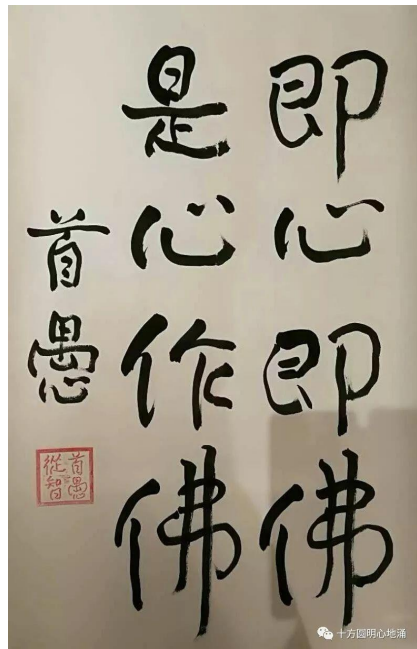 即心即佛
是心作佛
首愚
首愚
從智
十方圆明心地涌